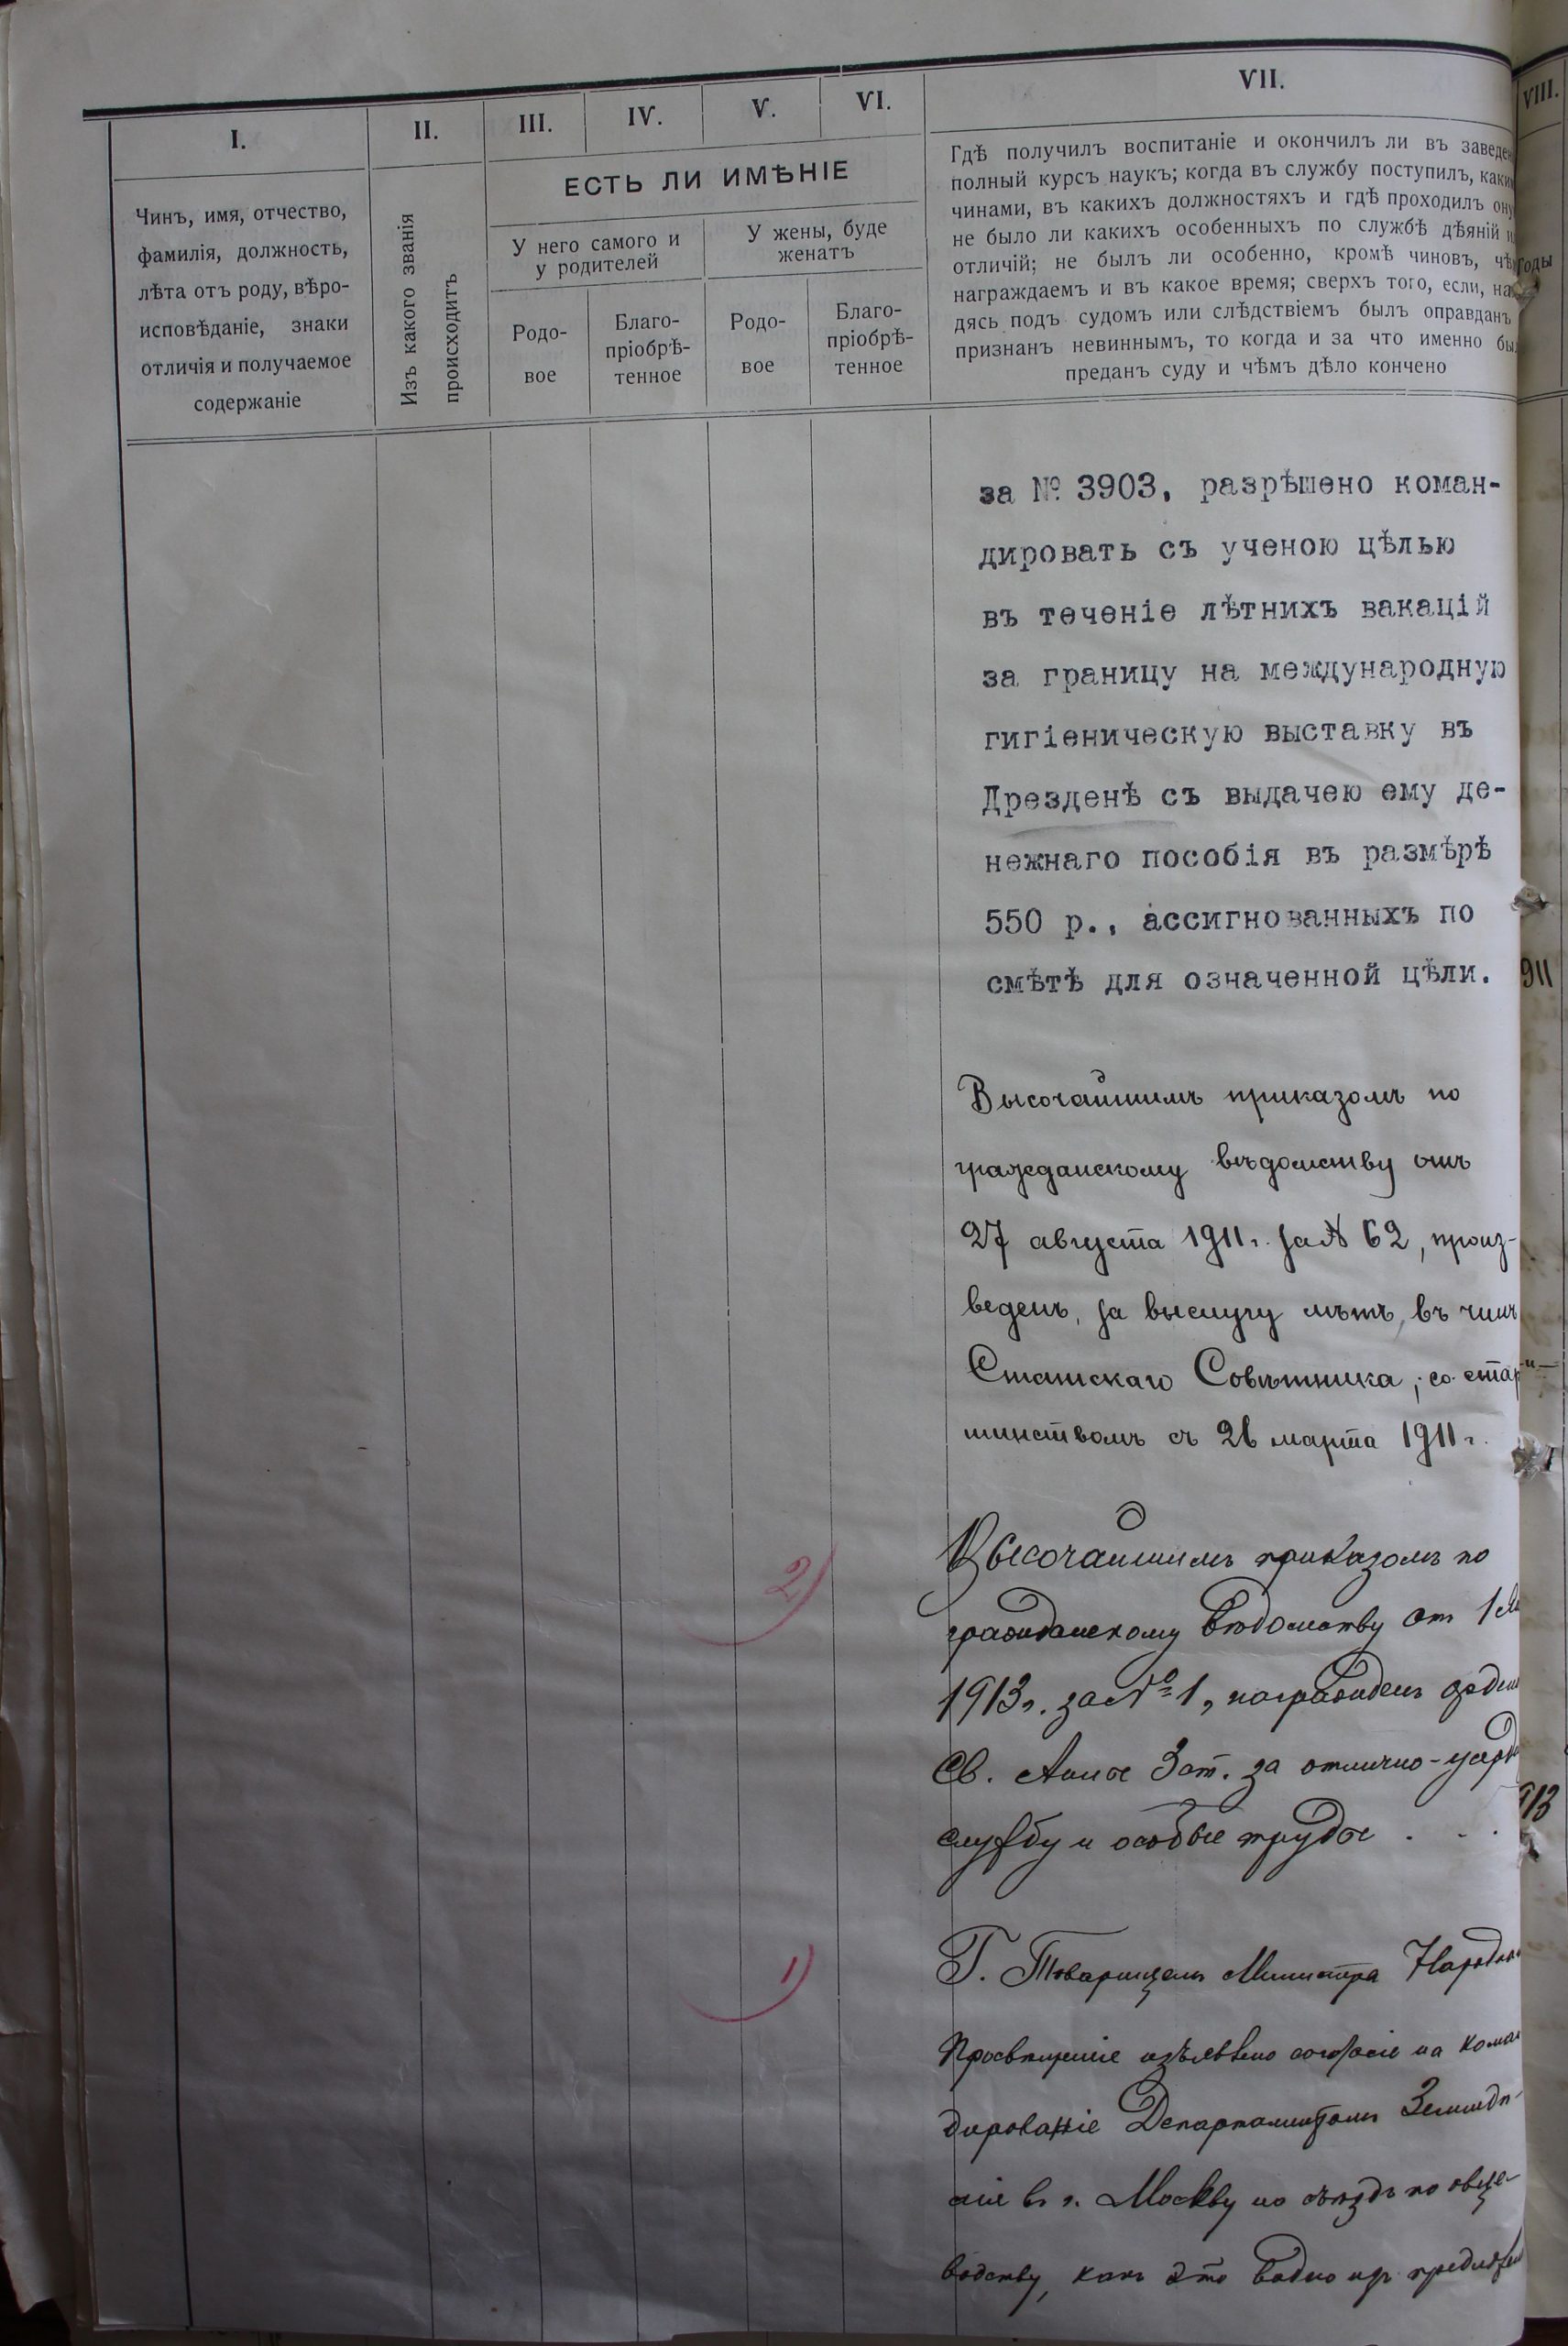 I.
II.
III.
IV.
V.
VI.
VII.
VIII.
Чинъ, имя, отчество,
фамилія, должность,
лѣта отъ роду, вѣро-
исповѣданіе, знаки
отличія и получаемое
содержаніе
Изъ какого званія
происходитъ
ЕСТЬ ЛИ ИМѢНІЕ
У него самого и
у родителей
У жены, буде
женатъ
Родо-
вое
Благо-
пріобрѣ-
тенное
Родо-
вое
Благо-
пріобрѣ-
тенное
Гдѣ получилъ воспитаніе и окончилъ ли въ заведен
полный курсъ наукъ; когда въ службу поступилъ, каким
чинами, въ какихъ должностяхъ и гдѣ проходилъ ону
не было ли какихъ особенныхъ по службѣ дѣяній и
отличій; не былъ ли особенно, кромѣ чиновъ, чѣ
награждаемъ и въ какое время; сверхъ того, если, на
дясь подъ судомъ или слѣдствіемъ былъ оправданъ
признанъ невиннымъ, то когда и за что именно бы
преданъ суду и чѣмъ дѣло кончено
Годы
за № 3903, разрѣшено коман-
дировать съ ученою цѣлью
въ теченіе лѣтнихъ вакацій
за границу на международную
гигіеническую выставку въ
Дрезденѣ съ выдачею ему де-
нежнаго пособія въ размѣрѣ
550 р., ассигнованныхъ по
смѣтѣ для означенной цѣли.
911
Высочайшимъ приказомъ по
гражданскому вѣдомству отъ
27 августа 1911 г. за № 62, произ-
веденъ, за выслугу лѣтъ, въ чинъ
Статскаго Совѣтника, со стар
шинствомъ съ 26 марта 1911 г.
2)
Высочайшимъ приказомъ по
гражданскому вѣдомству от 1
1913 г. за № 1, награжденъ орден
Св. Анны 3 ст. за отлично-усерд
службу и особые труды . . .
913
1)
Г. Товарищемъ Министра Народна
Просвѣщенія изъявлено согласіе на коман
дированіе Департаментомъ Земледѣ-
лія въ г. Москву на съѣздъ по овце-
водству, какъ это видно изъ предложен